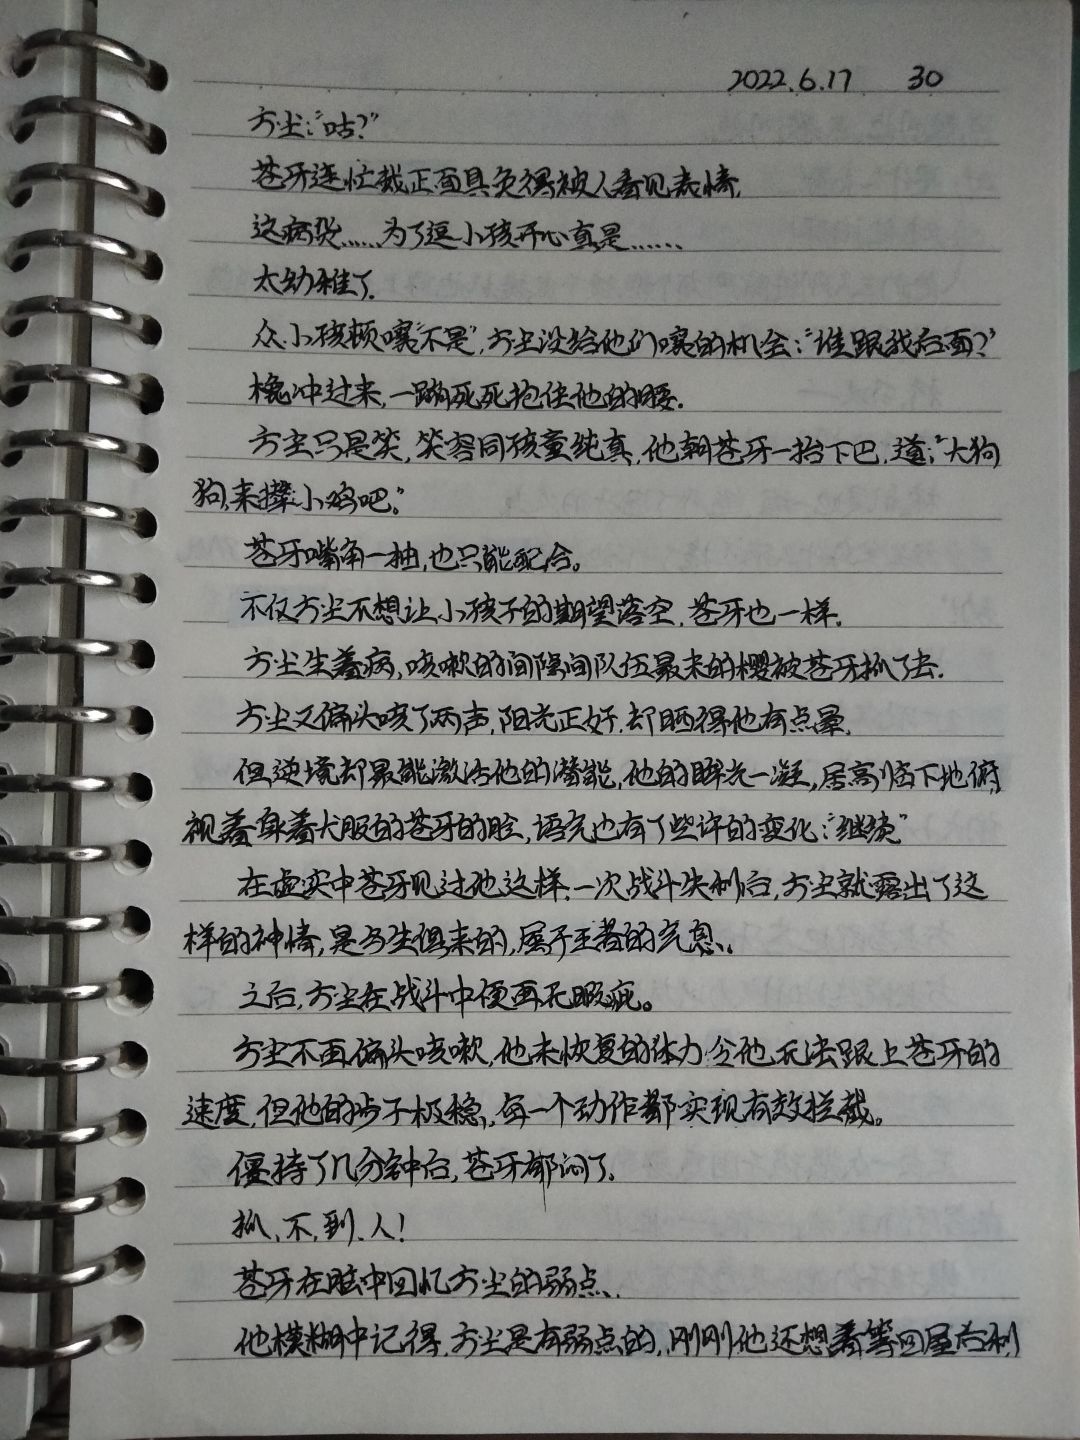 2022.6.17 30
方尘:“咕?”
苍牙连忙戴正面具免得被人看见表情.
这病货……为了逗小孩开心真是……
太幼稚了.
众小孩顿嚷“不是”,方尘没给他们嚷的机会:“谁跟我后面?”
橹冲过来,一蹦死死抱住他的腰.
方尘只是笑,笑容同孩童纯真,他朝苍牙一抬下巴,道:“大狗
狗,来撵小鸡吧.”
苍牙嘴角一抽,也只能配合。
不仅方尘不想让小孩子的期望落空,苍牙也一样.
方尘生着病,咳嗽的间隙间队伍最末的樱被苍牙抓了去.
方尘又偏头咳了两声,阳光正好,却晒得他有点晕.
但逆境却最能激活他的潜能,他的眸光一凝,居高临下地俯
视着身着犬服的苍牙的脸,语气也有了些许的变化:“继续”
在虚实中苍牙见过他这样.一次战斗失利后,方尘就露出了这
样的神情,是与生俱来的,属于王者的气息.
之后,方尘在战斗中便再无瑕疵。
方尘不再偏头咳嗽,他未恢复的体力令他无法跟上苍牙的
速度,但他的步子极稳,每一个动作都实现有效拦截。
僵持了几分钟后,苍牙郁闷了.
抓.不.到.人!
苍牙在脑中回忆方尘的弱点.
他模糊中记得,方尘是有弱点的,刚刚他还想着等回屋后利